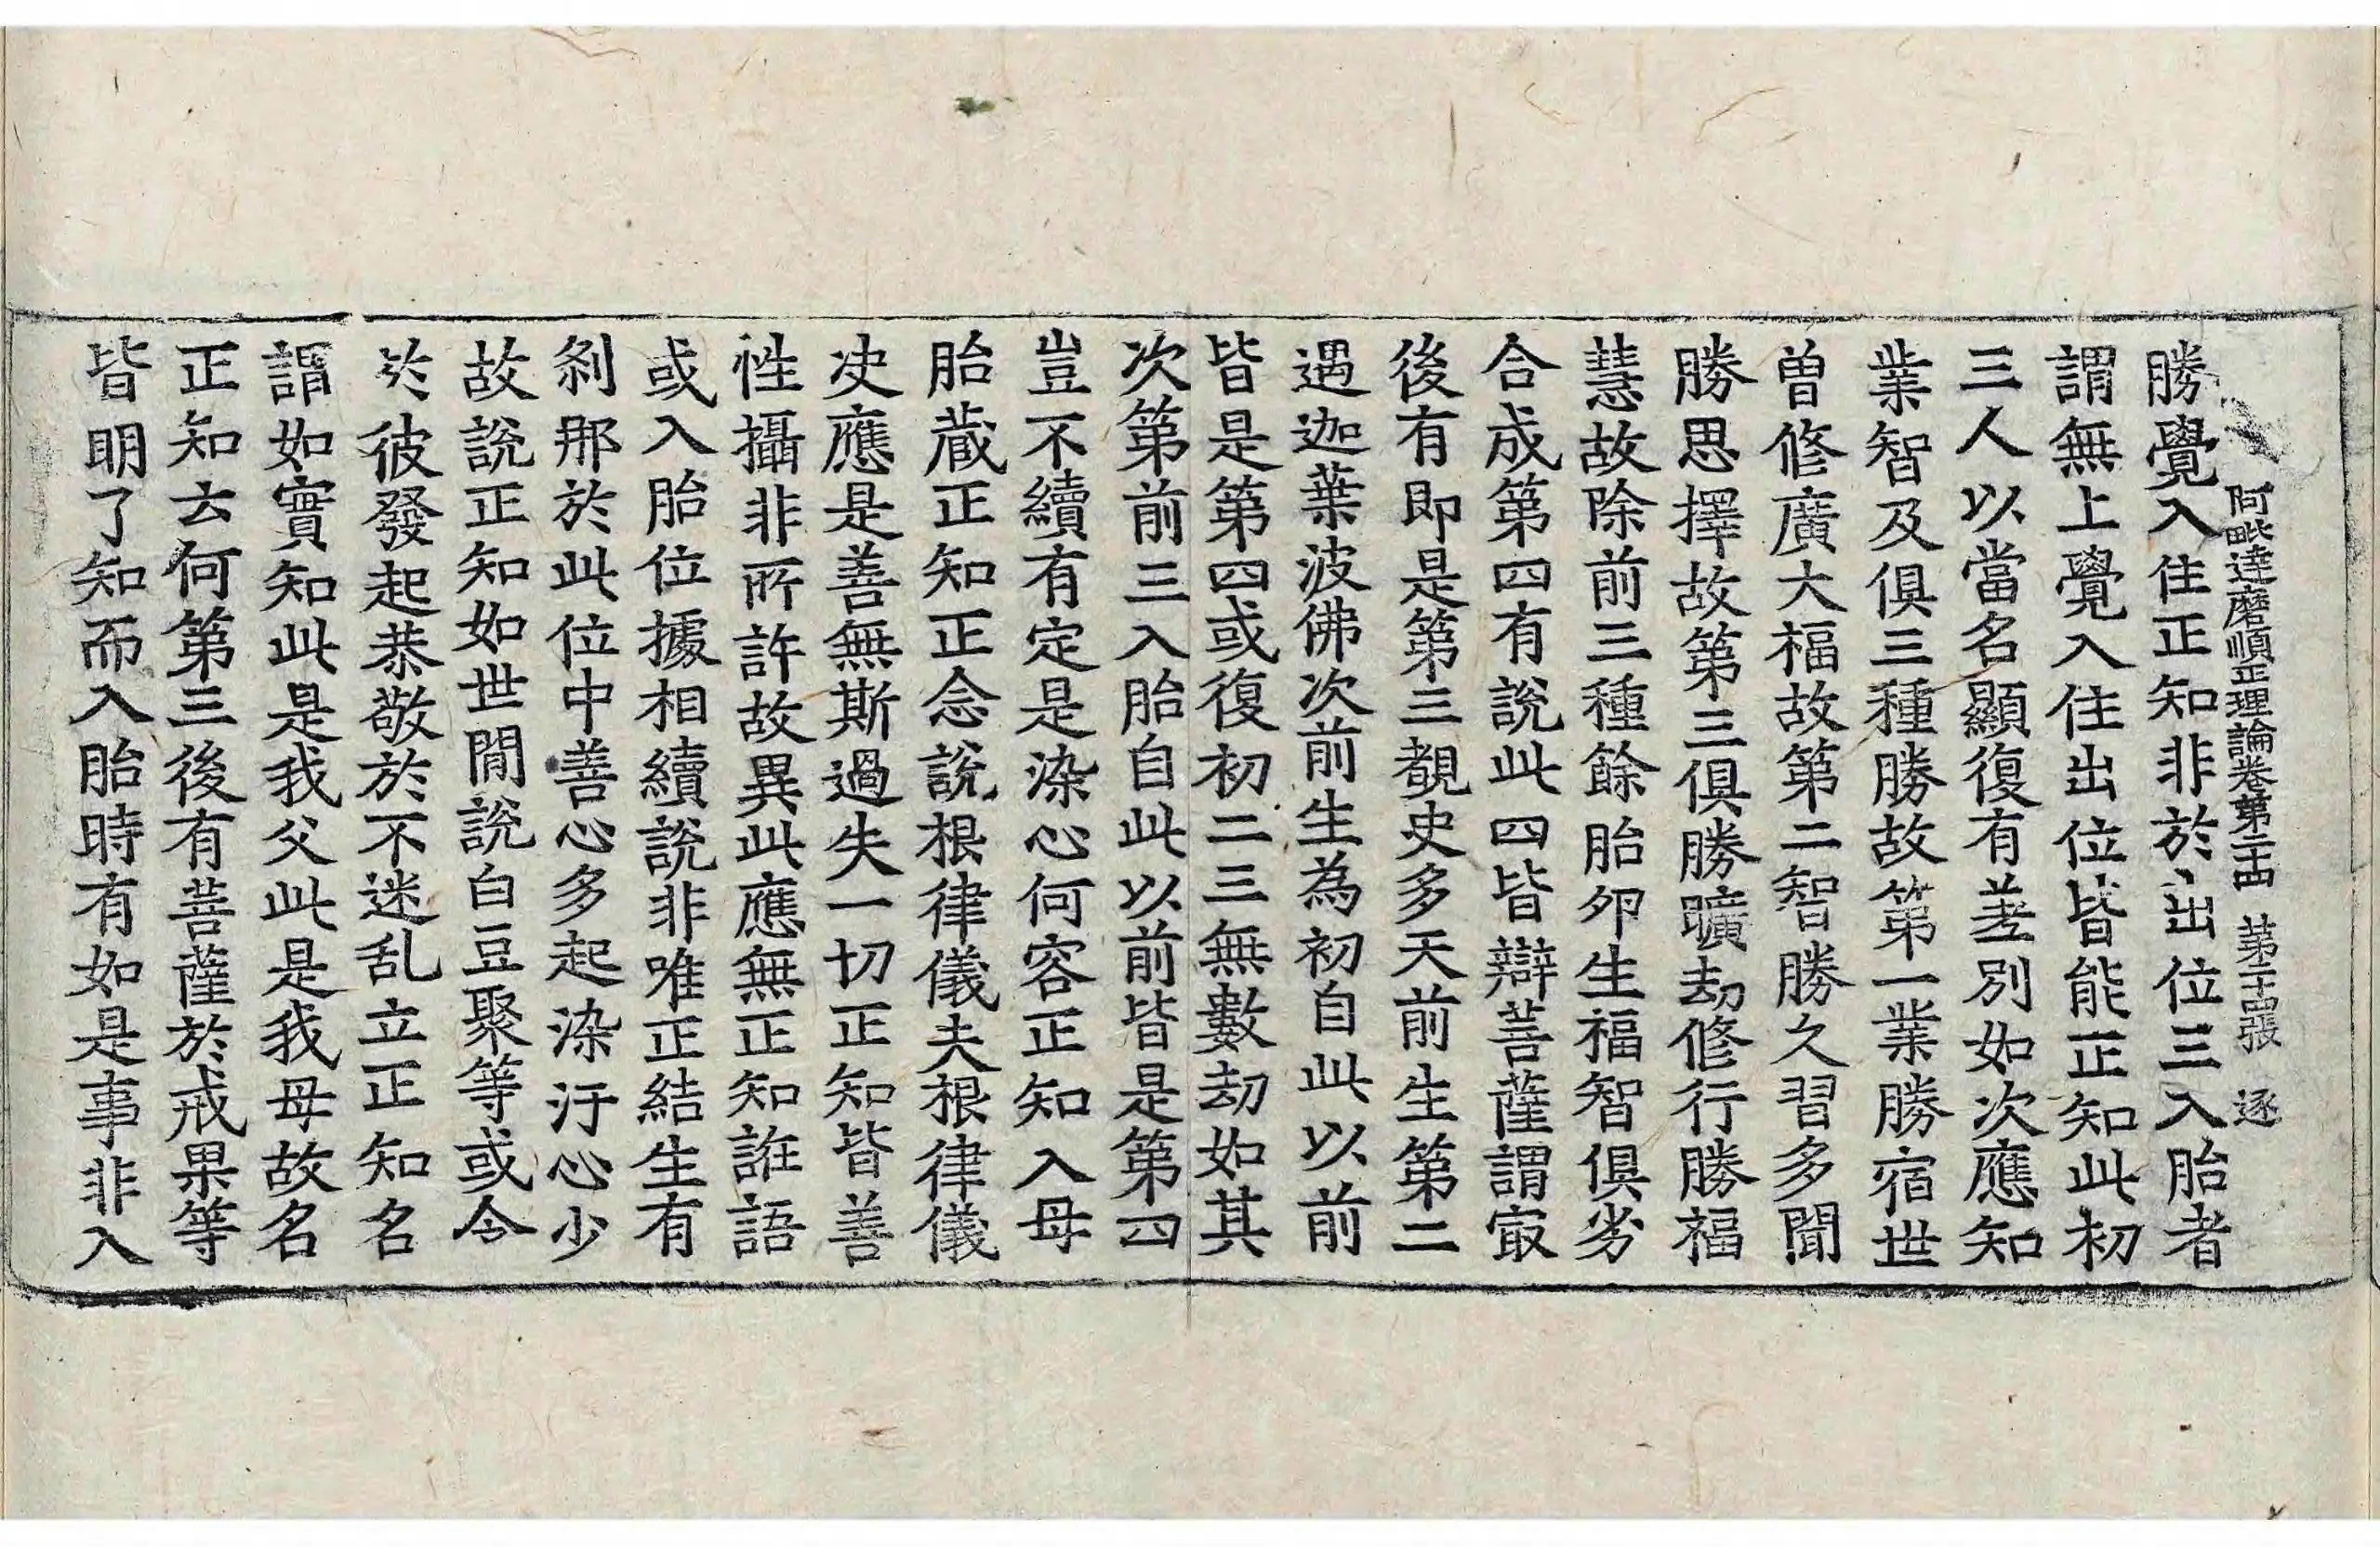 阿毗達磨順正理論卷第二十四 第二十四張 逐
勝覺入住正知非於出位三入胎者
謂無上覺入住出位皆能正知此初
三人以當名顯復有差別如次應知
業智及俱三種勝故第一業勝宿世
曽修廣大福故第二智勝久習多聞
勝思擇故第三俱勝曠劫修行勝福
慧故除前三種餘胎夘生福智俱劣
合成第四有說此四皆辯菩薩謂㝡
後有即是第三覩史多天前生第二
遇迦葉波佛次前生為初自此以前
皆是第四或復初二三無數劫如其
次第前三入胎自此以前皆是第四
豈不續有定是染心何容正知入母
胎藏正知正念說根律儀夫根律儀
决應是善無斯過失一切正知皆善
性攝非所許故異此應無正知誑語
或入胎位據相續說非唯正結生有
剎那於此位中善心多起染汙心少
故說正知如世閒說白豆聚等或今
於彼發起恭敬於不迷乱立正知名
謂如實知此是我父此是我母故名
正知去何第三後有菩薩於戒果等
皆明了知而入胎時有如是事非入